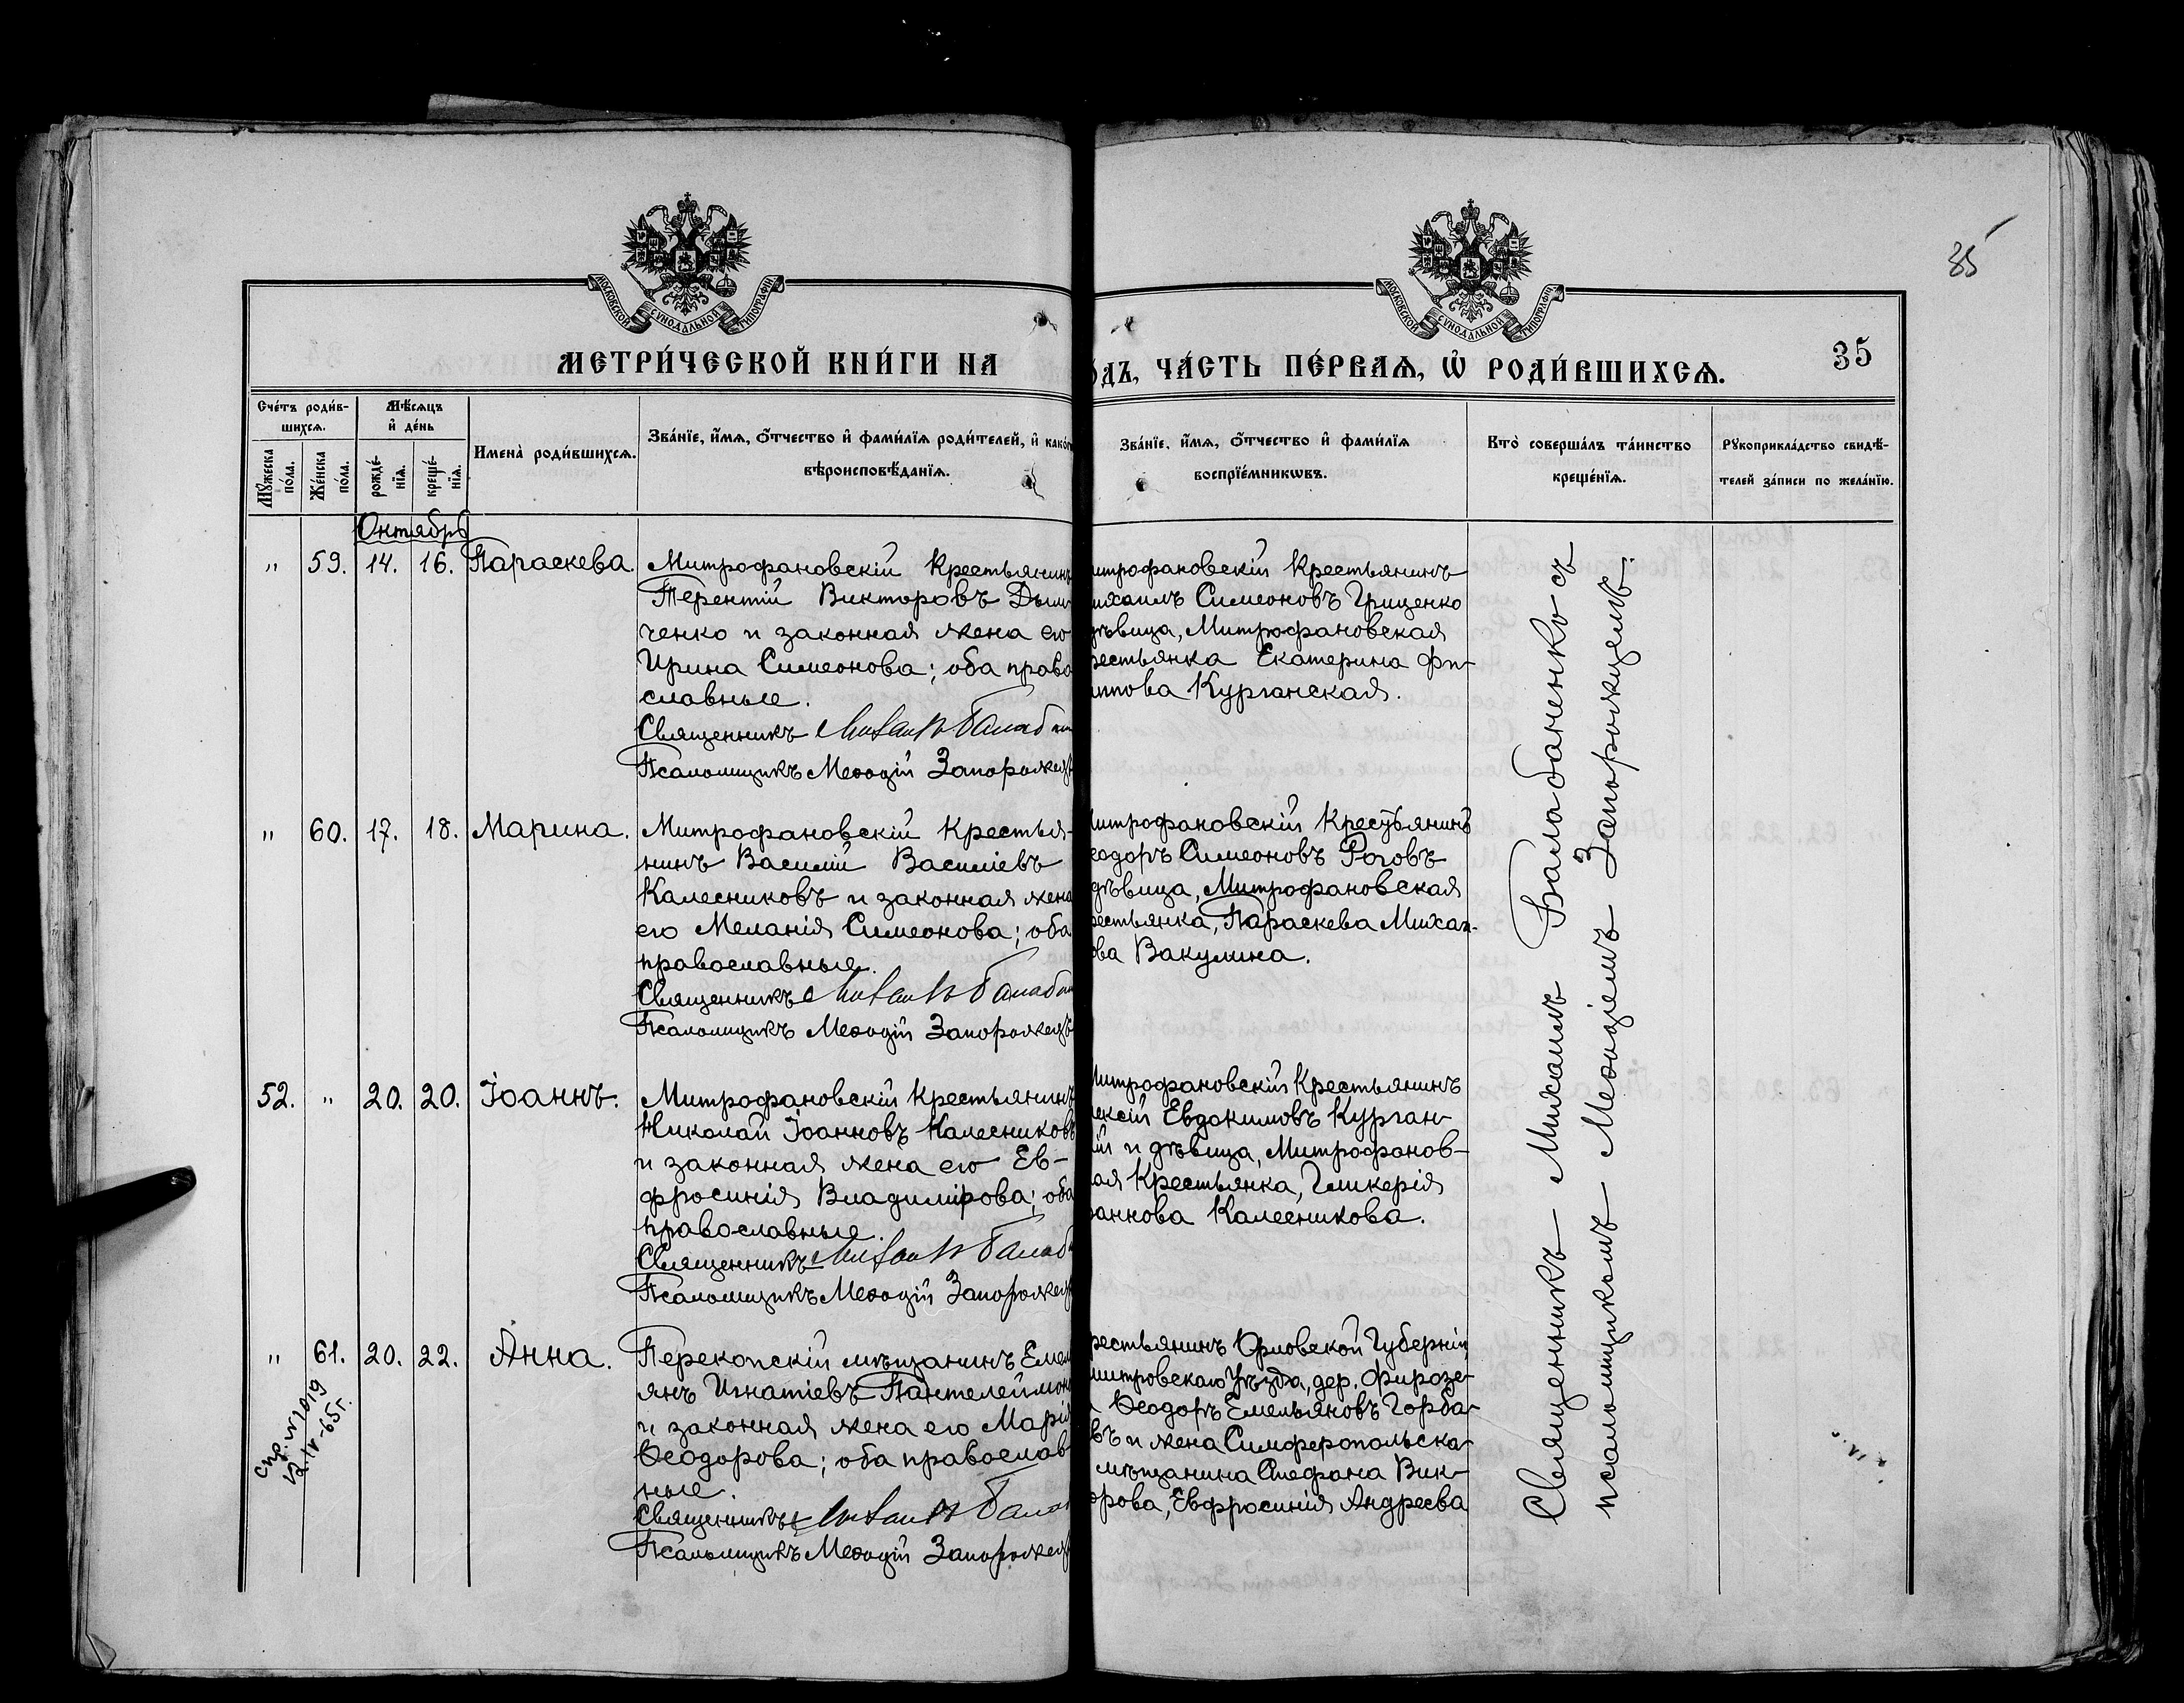 35
МОСКОВСКОЙ СУНОДАЛЬНОЙ ТИПОГРАФІИ
МОСКОВСКОЙ СУНОДАЛЬНОЙ ТИПОГРАФІИ
МЕТРИ́ЧЕСКОЙ КНИ́ГИ НА
ѻ́дъ, ЧА́СТЬ ПЕ́РВАѦ, Ѽ РОДИ́ВШИХСѦ.
35
Сче́тъ роди́в-
шихсѧ.
Мꙋ́жеска
по́ла.
Же́нска
по́ла.
Мѣ́сѧцъ
и҆ де́нь
рожде́-
нїѧ.
креще́-
нїѧ.
Имена̀ роди́вшихсѧ.
Зва́нїе, и҆́мѧ, ѻ҆́тчество и҆ фами́лїѧ роди́телей, и҆ како́г
вѣроисповѣ́данїѧ.
Зва́нїе, и҆́мѧ, ѻ҆́тчество и҆ фами́лїѧ
воспрїе́мникѡвъ.
Кто̀ соверша́лъ та́инство
креще́нїѧ.
Рꙋкоприкла́дство свидѣ́-
телей за́писи по жела́нїю.
Октябрь
" 59. 14. 16. Параскева.
Митрофановскій Крестьянинъ
Терентій Викторовъ Дым
ченко и законная жена его
Ирина Симеонова; оба право
славные.
Священникъ Михаилъ Балаб
Псаломщикъ Меѳодій Запорожец
итрофановскій Крестьянинъ
ихаилъ Симеоновъ Гриценко
дѣвица, Митрофановская
рестьянка Екатерина Фи-
иппова Курганская.
" 60. 17. 18. Марина.
Митрофановскій Крестья-
нинъ Василій Василіевъ
Калесниковъ и законная жена
его Меланія Симеонова; оба
православные.
Священникъ Михаилъ Балаб
Псаломщикъ Меѳодій Запорожецъ
Митрофановскій Крестьянинъ
еодоръ Симеоновъ Роговъ
дѣвица, Митрофановская
рестьянка, Параскева Михаи-
ова Вакулина.
52. " 20. 20. Іоаннъ.
Митрофановскій Крестьянинъ
Николай Іоанновъ Калесниковъ
и законная жена его Ев-
фросинія Владимірова; оба
православные.
Священникъ Михаилъ Балаб
Псаломщикъ Меѳодій Запорожец
Митрофановскій Крестьянинъ
ексій Евдокимовъ Курган-
ій и дѣвица, Митрофанов-
ая Крестьянка, Гликерія
оаннова Калесникова.
" 61. 20. 22. Анна.
Перекопскій мѣщанинъ Емел
янъ Игнатіевъ Пантелеймон
и законная жена его Марія
Ѳеодорова; оба православ
ные.
Священникъ Михаилъ Бала
Псаломщикъ Меѳодій Запорожец
рестьянинъ Орловской Губерніи
митровскаго Уѣзда, дер.
Ѳеодоръ Емельяновъ Горба-
въ и жена Симферопольска-
мѣщанина Стефана Вик-
орова, Евфросинія Андреева
спр. № 2019
12.IV-65г.
Священникъ Михаилъ Балабаненко съ
псаломщикомъ Меѳодіемъ Запорожцемъ.